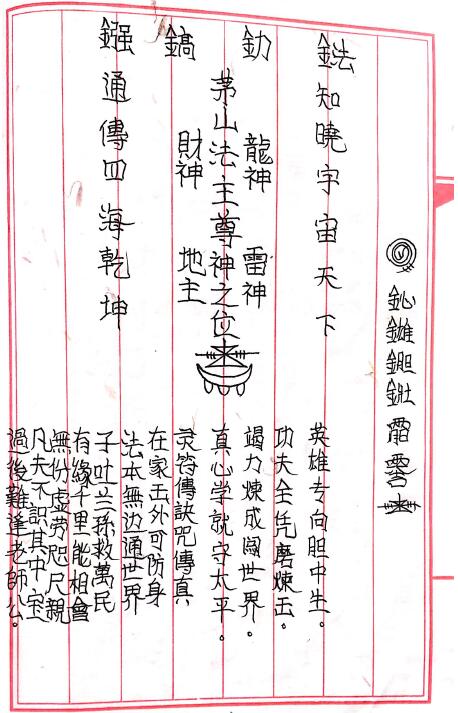 鈊
鍅知曉宇宙天下
釛
龍神 雷神
茅山法主尊神之位
鎬
財神 地主
鏹通傳四海乾坤
英雄专向胆中生。
功夫全凭磨煉出。
竭力煉成闖世界。
真心学就守太平。
灵符傳訣咒傳真
在家出外可防身
法本無边通世界
子吐兰孫救萬民
有緣千里能相會
無份虚劳咫尺親
凡夫不識其中宝
過後難逢老師公。